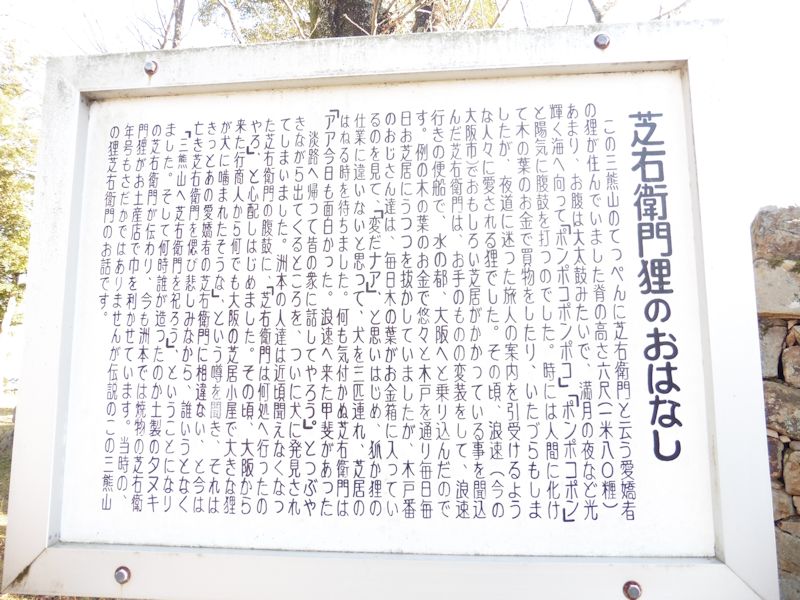 芝右衛門狸のおはなし
この三熊山のてっぺんに芝右衛門と云う愛嬌者
の狸が住んでいました脊の高さ六尺(一米八〇糎)
あまり、お腹は大太鼓みたいで、満月の夜など光
輝く海へ向って「ポンポコポンポコ」「ポンポコポン」
と陽気に腹鼓を打つのでした。時には人間に化け
て木の葉のお金で買物をしたり、いたづらもしま
したが、夜道に迷った旅人の案内を引受けるよう
な人々に愛される狸でした。その頃、浪速(今の
大阪市)でおもしろい芝居がかかっている事を聞込
んだ芝右衛門は、お手のものの変装をして、浪速
行きの便船で、水の都、大阪へと乗り込んだので
す。例の木の葉のお金で悠々と木戸を通り毎日毎
日お芝居にうつつを抜かしていましたが、木戸番
のおじさん達は、毎日木の葉がお金箱に入ってい
るのを見て、「変だナア」、と思いはじめ、狐か狸の
仕業に違いないと思って、犬を三匹連れ、芝居の
はねる時を待ちました。何も気付かぬ芝右衛門は
「アア今日も面白かった。浪速へ来た甲斐があった
淡路へ帰って皆の衆に話してやろう」。とつぶや
きながら出てくるところを、ついに犬に発見され
てしまいました。洲本の人達は近頃聞えなくなっ
た芝右衛門の腹鼓に、「芝右衛門は何処へ行ったの
やろ」、と心配しはじめました。その頃、大阪から
来た行商人から何でも大阪の芝居小屋で大きな狸
が犬に噛まれたそうな」、という噂を聞き、それは
きっとあの愛嬌者の芝右衛門に相違ない、と今は
亡き芝右衛門を偲び悲しみながら、誰いうとなく
「三熊山へ芝右衛門を祀ろう」、ということになり
ました。そして何時誰が造ったのか土製のタヌキ
の芝右衛門が伝わり、今も洲本では焼物の芝右衛
門狸がお土産店で巾を利かせています。当時の、
年号もさだかではありませんが伝説のこの三熊山
の狸芝右衛門のお話です。